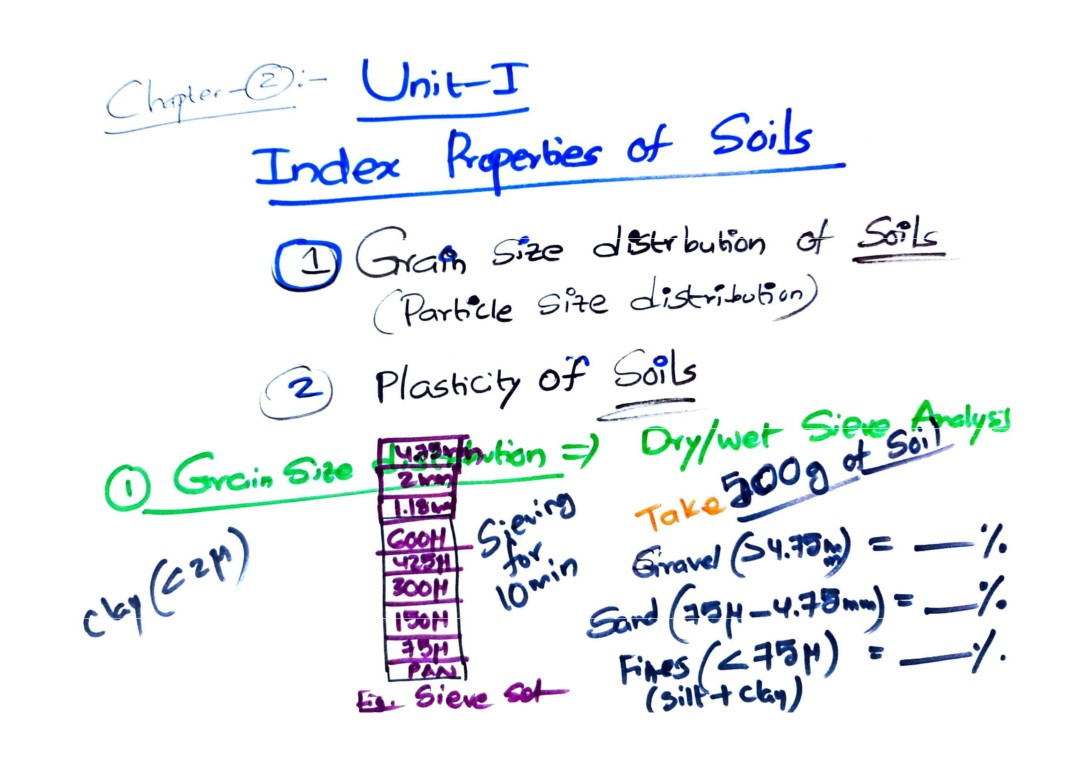 Chapter-②:- Unit-I
Index Properties of Soils
① Grain size distrbution of Soils
(Particle size distribution)
② Plasticity of Soils
① Grain Size distribution => Dry/wet Sieve Analysis
Take 500g of Soil
4.75mm
2mm
1.18m
600μ
425μ
300μ
150μ
75μ
PAN
Fig. Sieve Set
Sieving
for
10min
Clay (<2μ)
Gravel (>4.75mm) = __ %
Sand (75μ-4.75mm) = __ %
Fines (<75μ) = __ %.
(silt + clay)